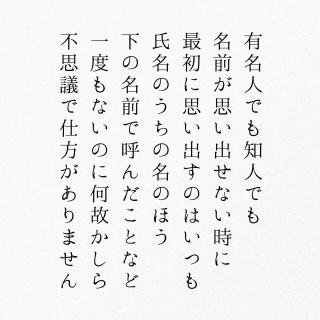 有名人でも知人でも
名前が思い出せない時に
最初に思い出すのはいつも
氏名のうちの名のほう
下の名前で呼んだことなど
一度もないのに何故かしら
不思議で仕方がありません